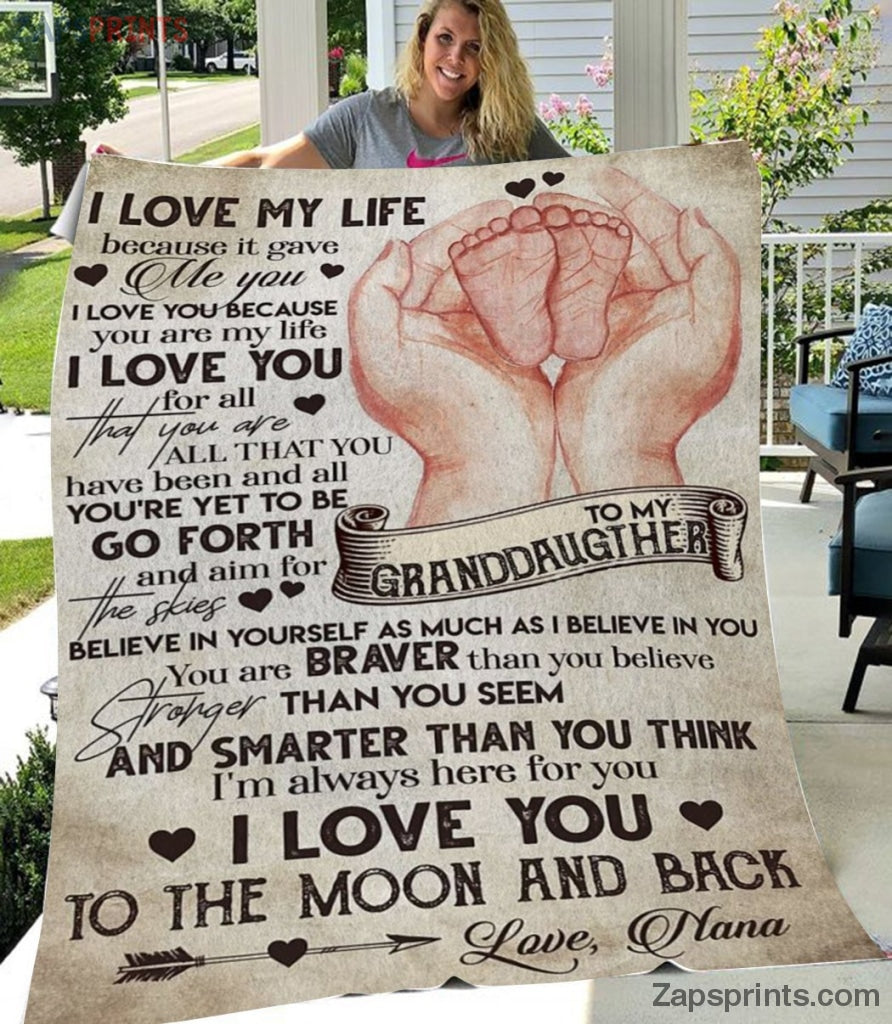 PRINTS
I LOVE MY LIFE
because it gave
Me you
I LOVE YOU BECAUSE
you are my life
I LOVE YOU
for all
that you are
ALL THAT YOU
have been and all
YOU'RE YET TO BE
GO FORTH
and aim for
the skies
TO MY
GRANDDAUGTHER
BELIEVE IN YOURSELF AS MUCH AS I BELIEVE IN YOU
You are BRAVER than you believe
Stronger THAN YOU SEEM
AND SMARTER THAN YOU THINK
I'm always here for you
I LOVE YOU
TO THE MOON AND BACK
Love, Nana
Zapsprints.com